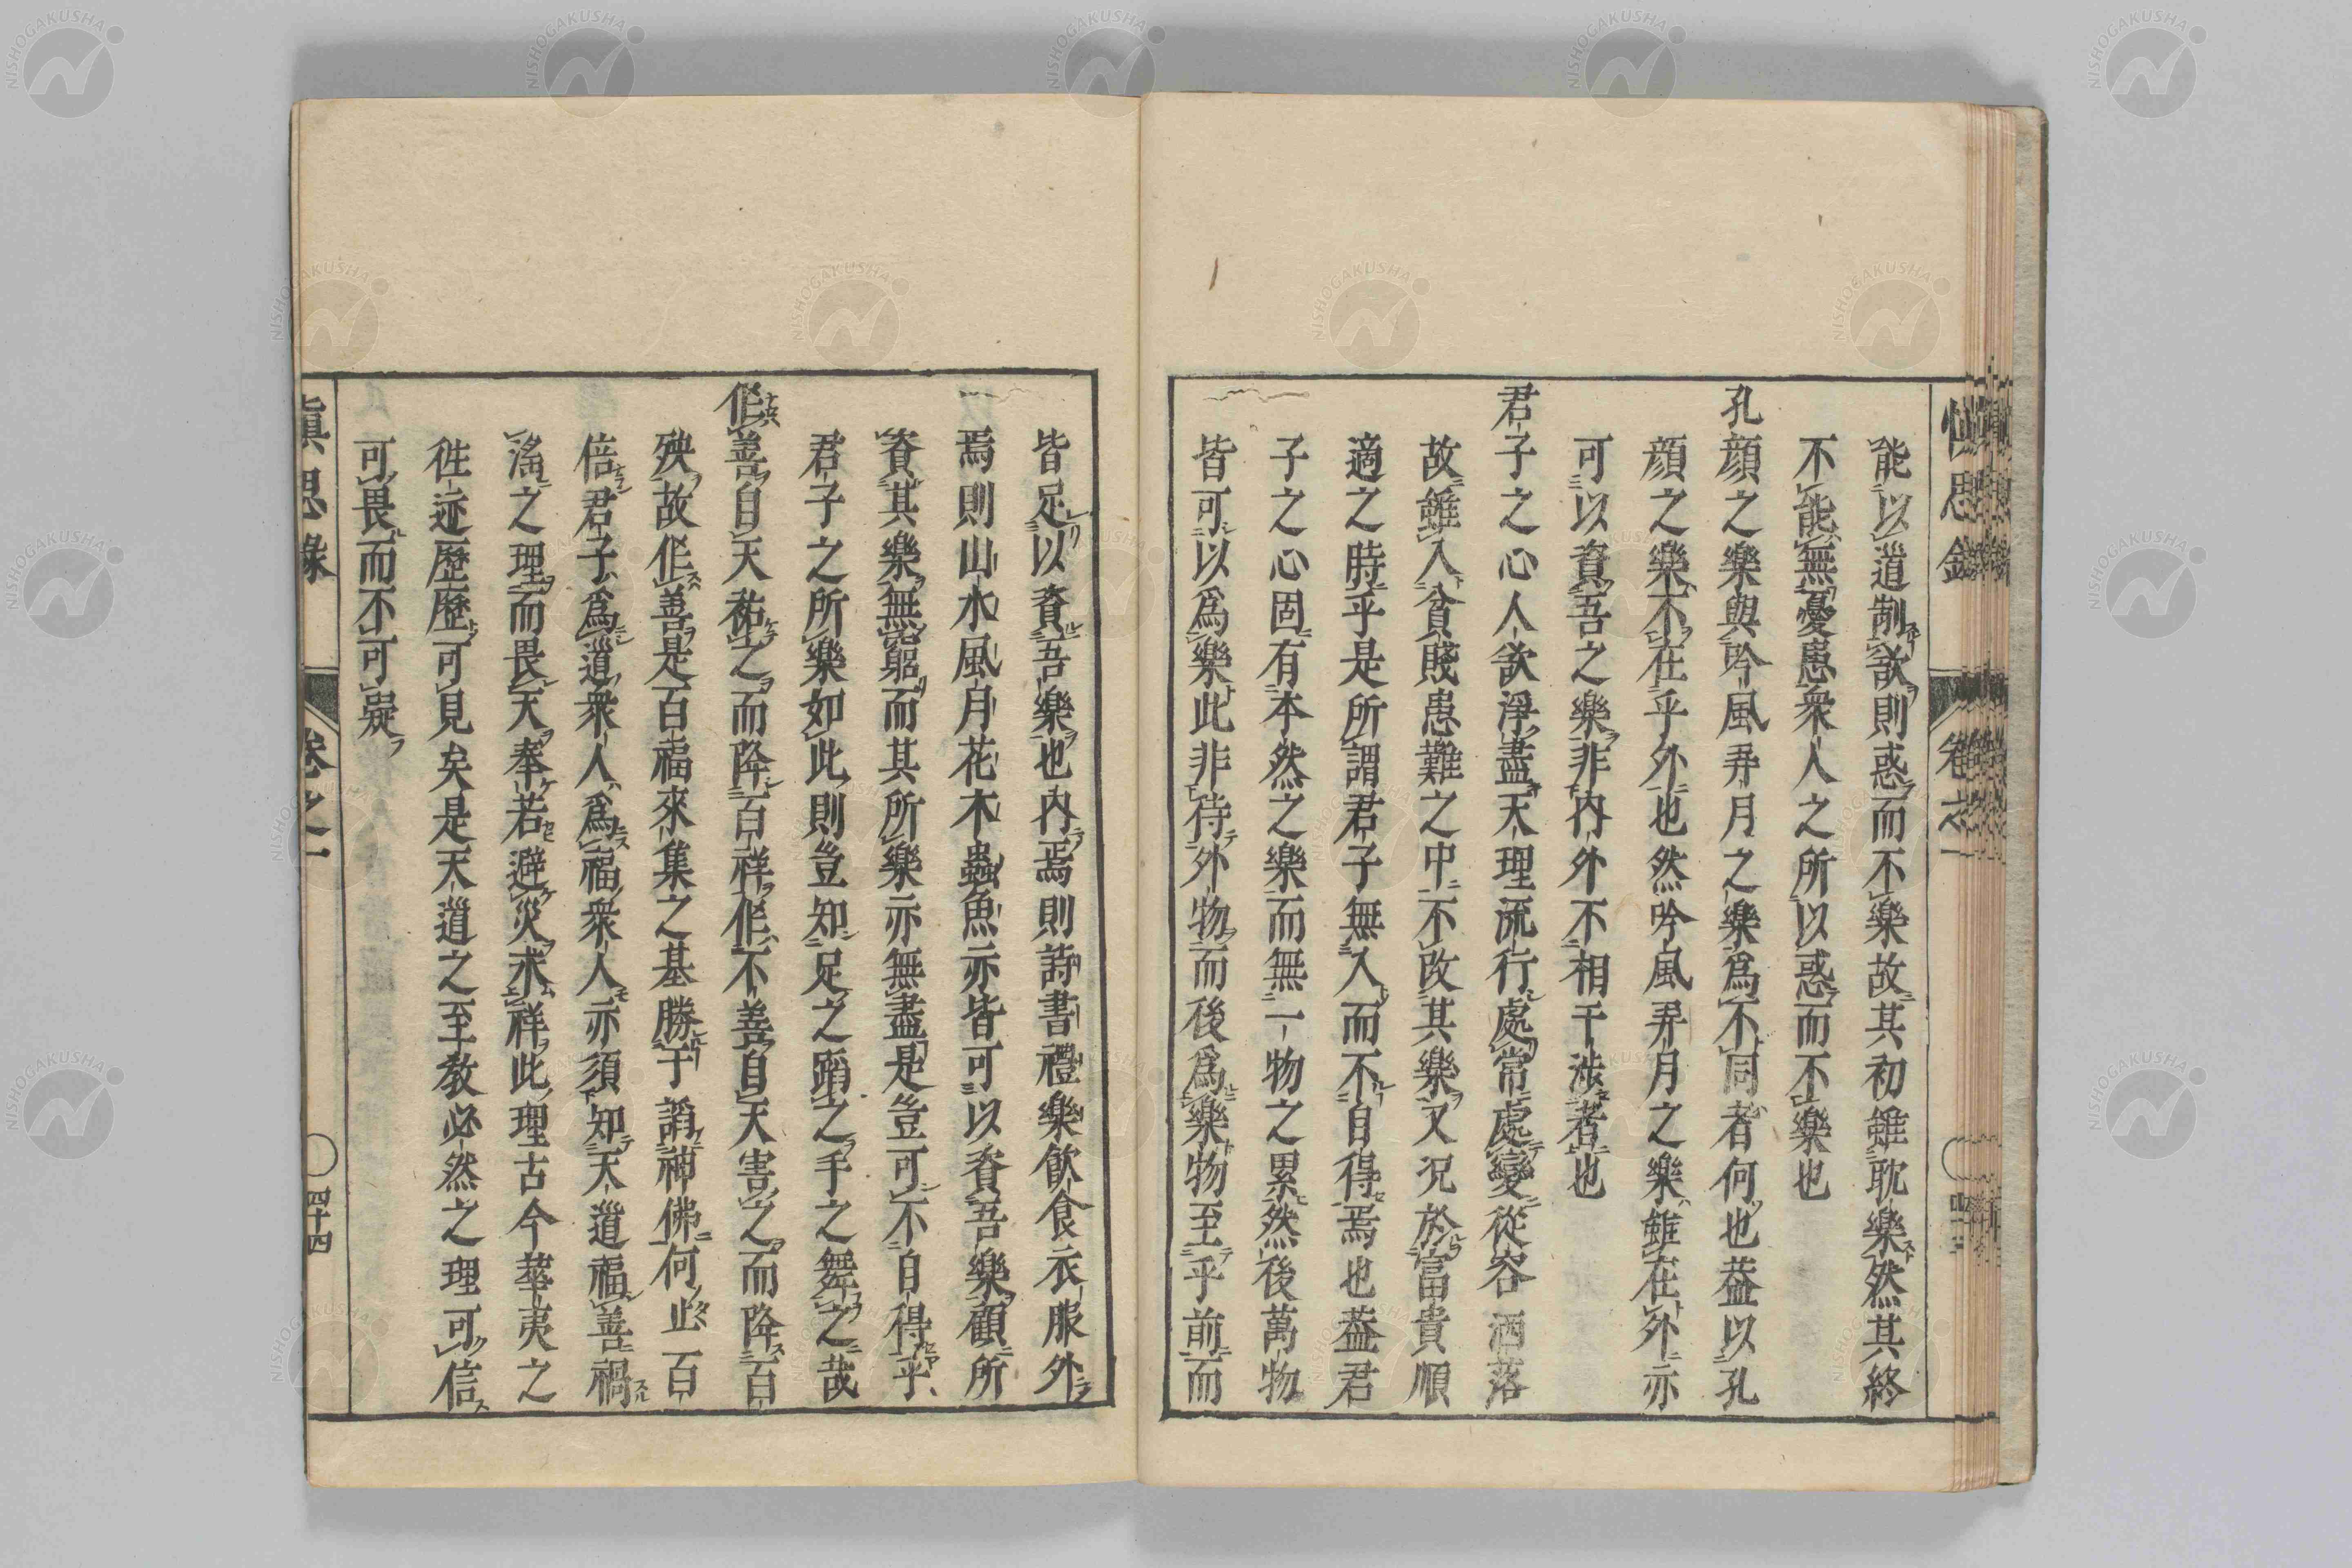 慎思録 卷之一
能以道制欲則惑而不樂故其初雖耽樂然其終
不能無憂患衆人之所以惑而不樂也
孔顔之樂與吟風弄月之樂爲不同者何也葢以孔
顔之樂不在乎外也然吟風弄月之樂雖在外亦
可以資吾之樂非内外不相干渉者也
君子之心人欲淨盡天理流行處常處變從容洒落
故雖入貧賤患難之中不改其樂又况於富貴順
適之時乎是所謂君子無入而不自得焉也葢君
子之心固有本然之樂而無一物之累然後萬物
皆可以爲樂此非待外物而後爲樂物至乎前而
皆足以資吾樂也内焉則詩書禮樂飮食衣服外
焉則山水風月花木蟲魚亦皆可以資吾樂顧所
資其樂無窮而其所樂亦無盡是豈可不自得乎
君子之所樂如此則豈知足之蹈之手之舞之哉
作善自天祐之而降百祥作不善自天害之而降百
殃故作善是百福來集之基勝于諂神佛何止百
倍君子爲道衆人爲福衆人亦須知天道福善禍
淫之理而畏天奉若避災求祥此理古今華夷之
徃迹歷歷可見矣是天道之至敎必然之理可信
可畏而不可疑
愼思錄 卷之一 四十四
NISHOGAKUSHA